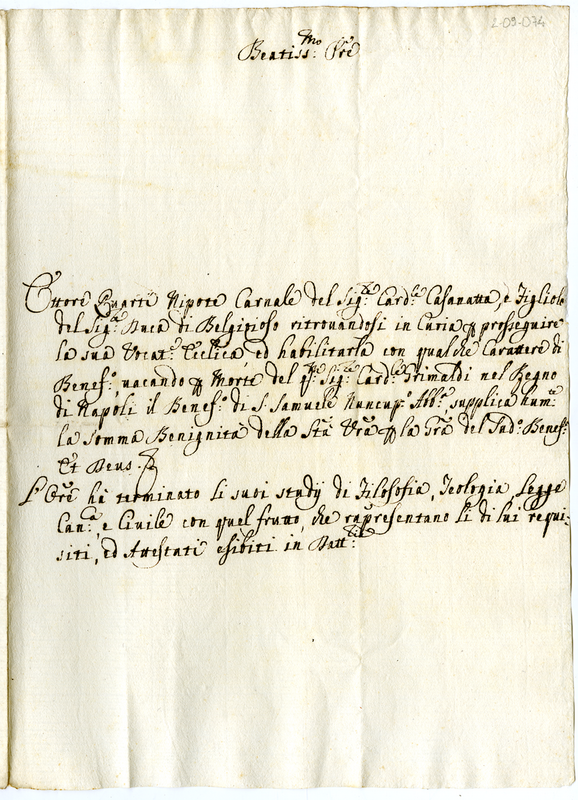 2-09-074
Beatiss:mo Pre
Ettore Quarti Nipote Carnale del Sig:r Card:le Casanatta, e Figliolo
del Sig:r Duca di Belgioioso ritrovandosi in Curia p proseguire
la sua Vocat:e Ecclica, ed habilitarla con qualche Carattere di
Benef:o, uacando p Morte del q:m Sig:r Card:le Grimaldi nel Regno
di Napoli il Benef:o di S. Samuele Nuncup:o Abb:e, supplica hum:e
la somma Benignità della Stà Vrã p la Grã del Sud:o Benef:o
Et Deus
L'Orẽ hà terminato li suoi studij di Filosofia, Teologia, Legge
Can:ca, e Civile con quel frutto, che rapresentano li di lui requi-
siti, ed Attestati esibiti in